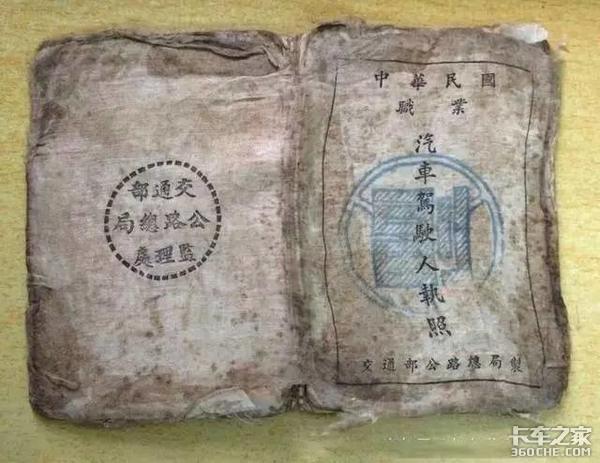 交通部
公路總局
監理處
中華民國
職業
汽車駕駛人執照
交通部公路總局製
卡车之家
360CHE.COM